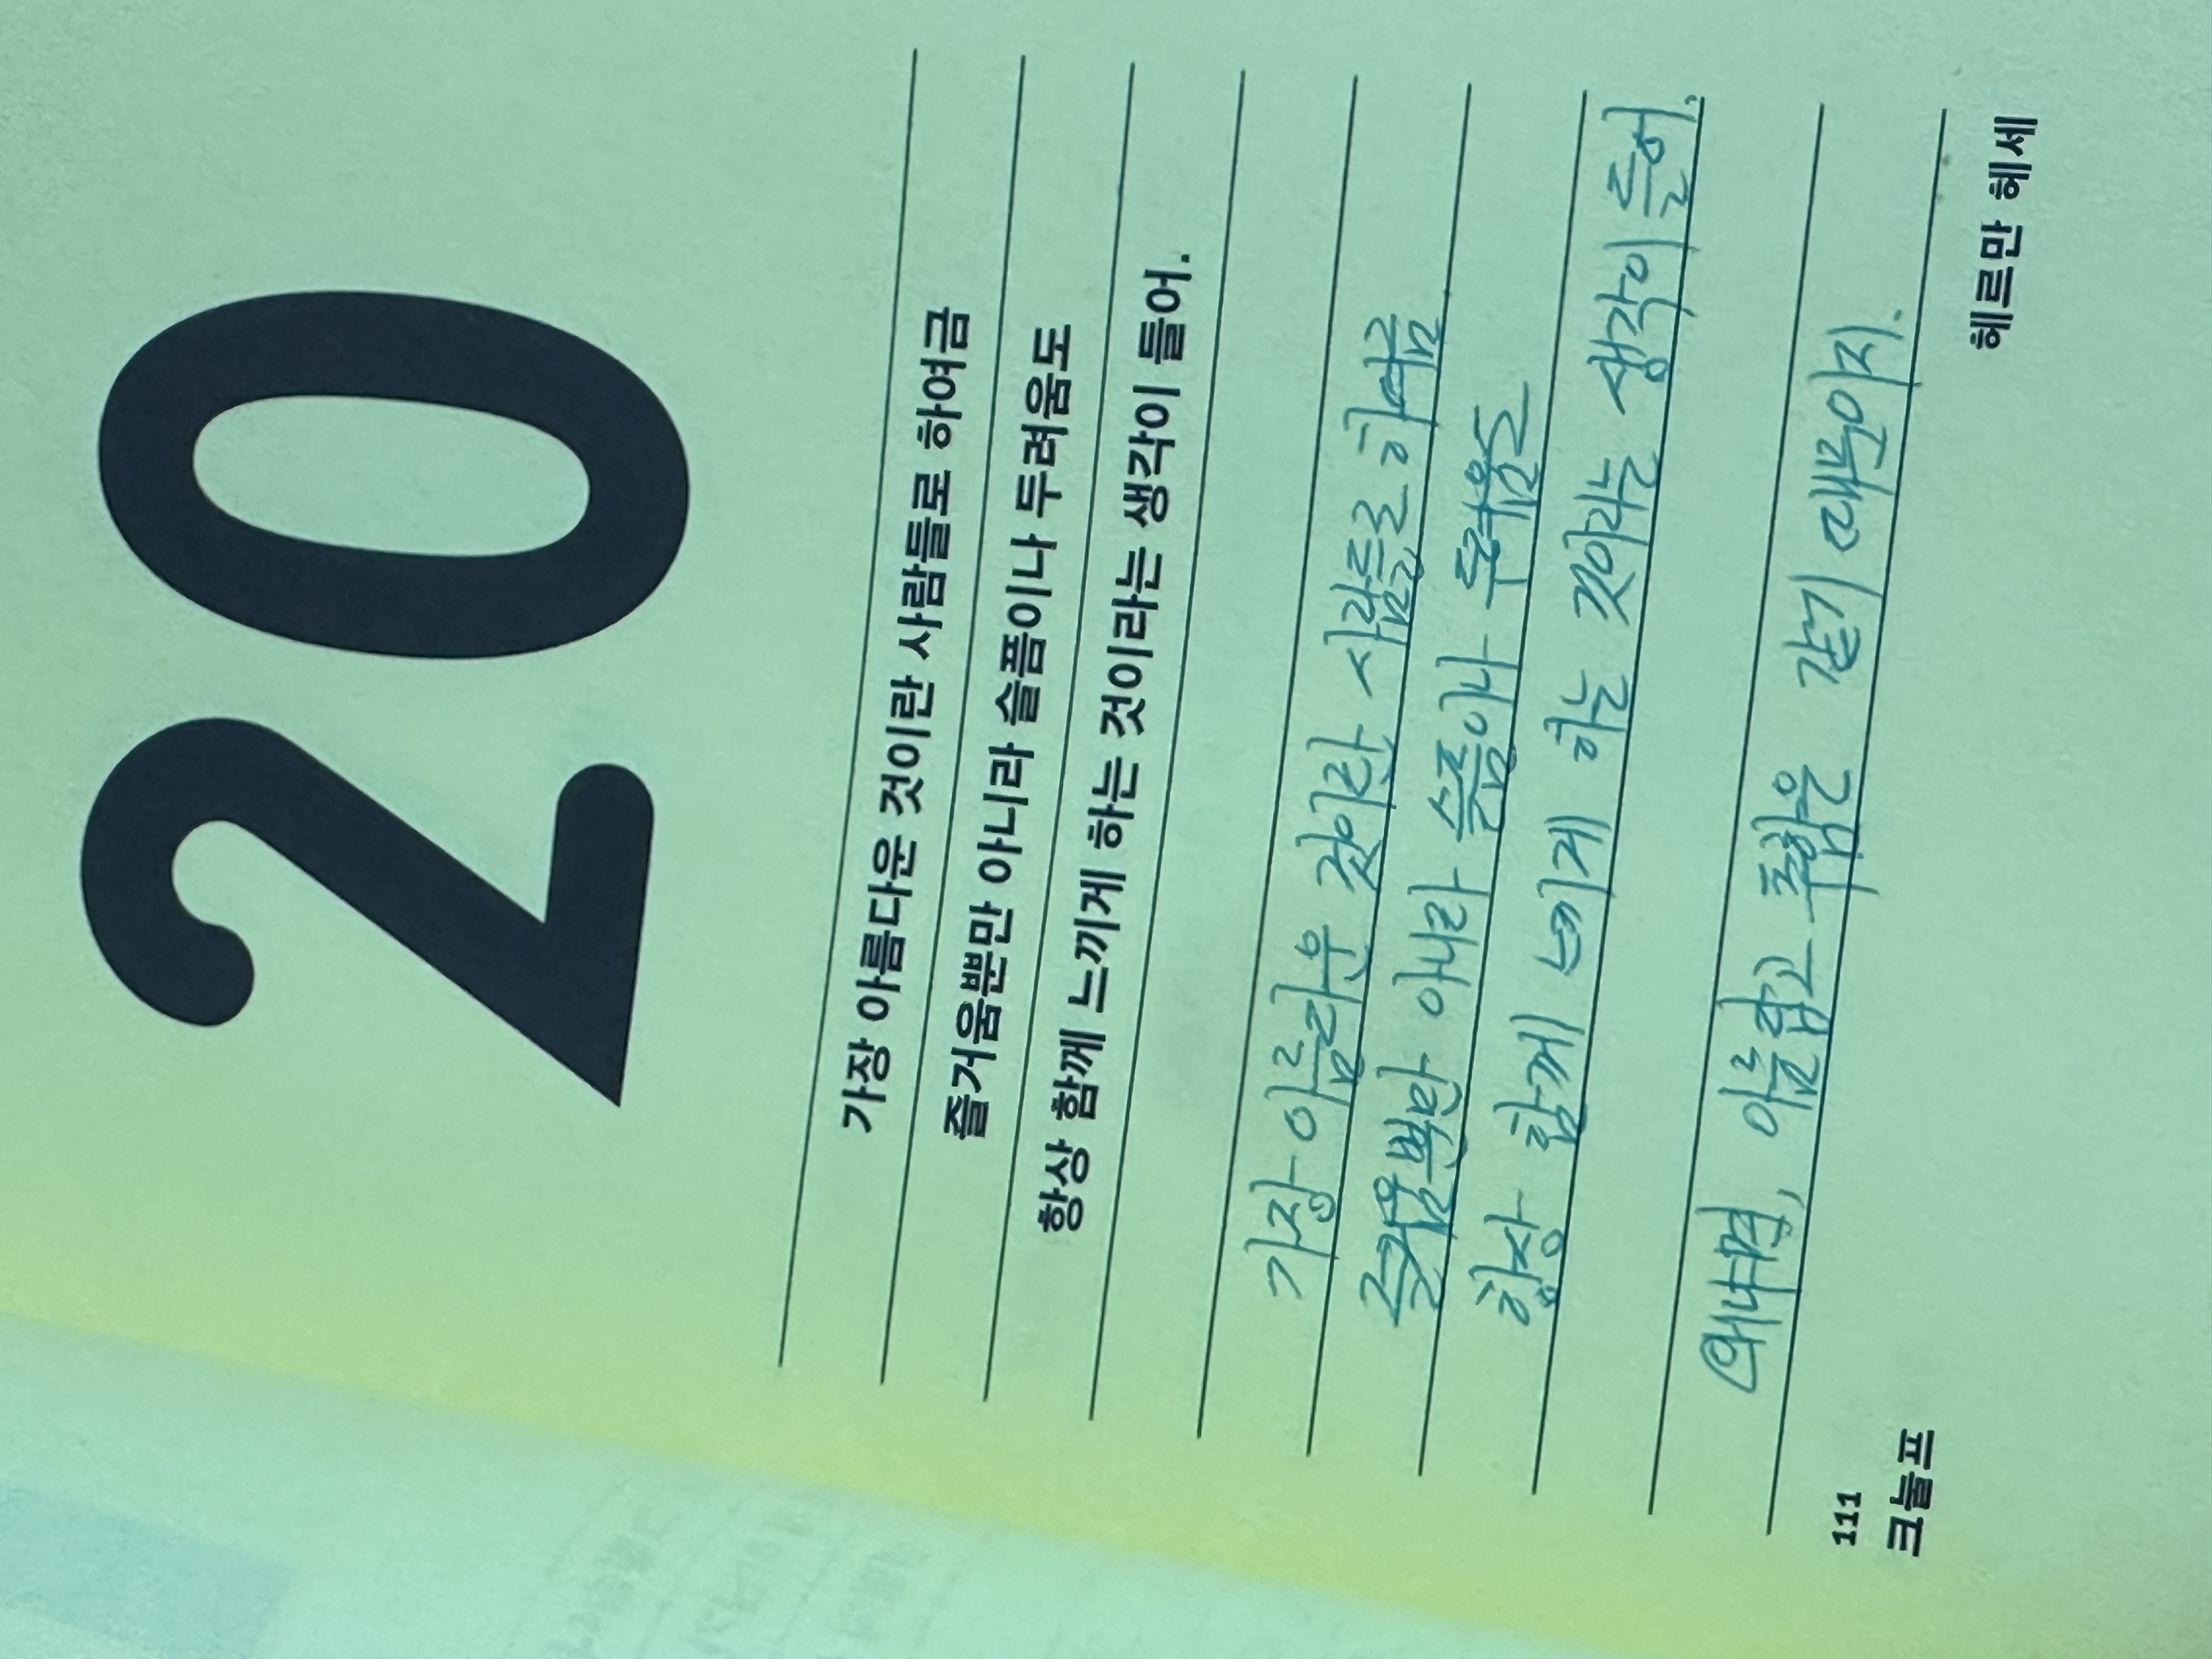 20
가장 아름다운 것이란 사람들로 하여금
즐거움뿐만 아니라 슬픔이나 두려움도
항상 함께 느끼게 하는 것이라는 생각이 들어.
가장 아름다운 것이란 사람들로 하여금
즐거움뿐만 아니라 슬픔이나 두려움도
항상 함께 느끼게 하는 것이라는 생각이 들어.
왜냐면, 아름답고 추함은 같기 때문이지.
111
크눌프
헤르만 헤세